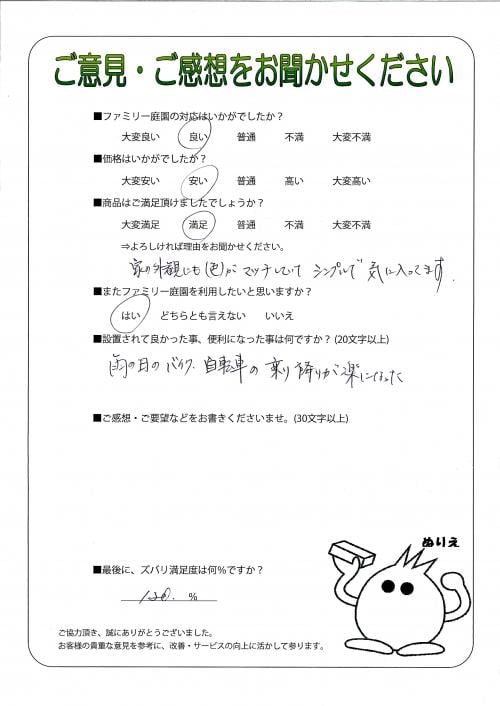 ご意見・ご感想をお聞かせください
■ファミリー庭園の対応はいかがでしたか？
大変良い 良い 普通 不満 大変不満
■価格はいかがでしたか？
大変安い 安い 普通 高い 大変高い
■商品はご満足頂けましたでしょうか？
大変満足 満足 普通 不満 大変不満
⇒よろしければ理由をお聞かせください。
家の外観にも(色)がマッチしていてシンプルで気に入ってます.
■またファミリー庭園を利用したいと思いますか？
はい どちらとも言えない いいえ
■設置されて良かった事、便利になった事は何ですか？(20文字以上)
雨の日のバイク.自転車の乗り降りが楽になった
■ご感想・ご要望などをお書きくださいませ。(30文字以上)
ぬりえ
■最後に、ズバリ満足度は何%ですか？
%
ご協力頂き、誠にありがとうございました。
お客様の貴重な意見を参考に、改善・サービスの向上に活かして参ります。